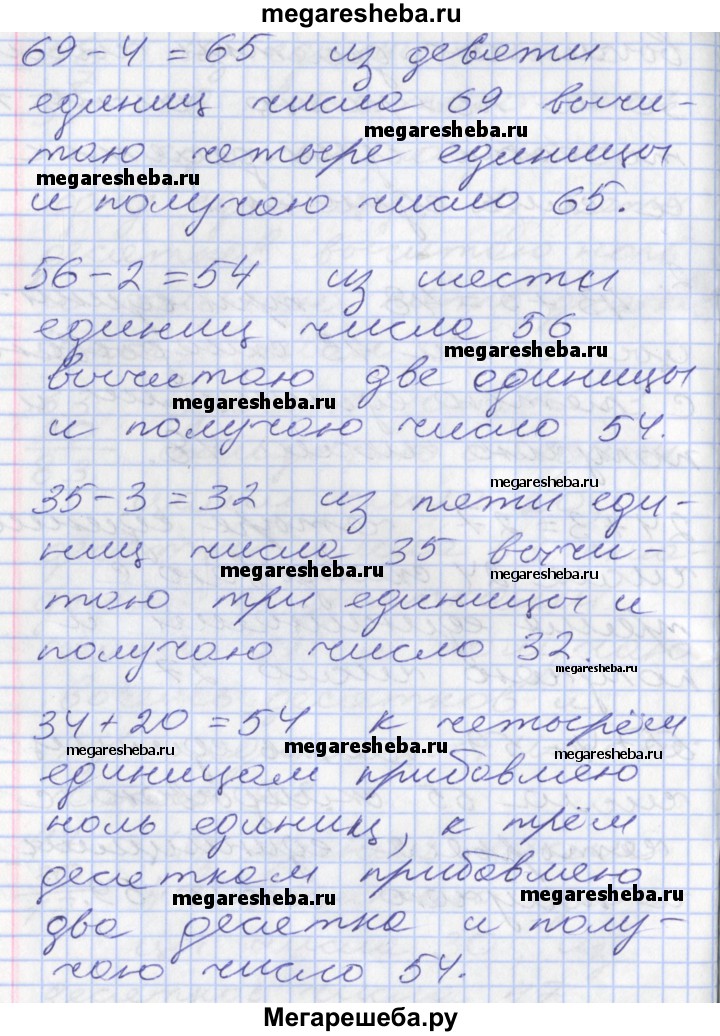 megaresheba.ru
69-4=65 из девяти
единиц числа 69 вычи-
megaresheba.ru
таю четыре единицы
megaresheba.ru
и получаю число 65.
56-2=54 из шести
единиц числа 56
megaresheba.ru
вычетаю две единицы
megaresheba.ru
и получаю число 54.
megaresheba.ru
35-3=32 из пяти еди-
ниц числа 35 вычи-
megaresheba.ru megaresheba.ru
таю три единицы и
получаю число 32.
megaresheba.ru
34+20=54 к четырём
megaresheba.ru megaresheba.ru megaresheba.ru
единицам прибавляю
ноль единиц, к трём
десяткам прибавляю
megaresheba.ru megaresheba.ru
два десятка и полу-
чаю число 54.
Мегарешеба.ру